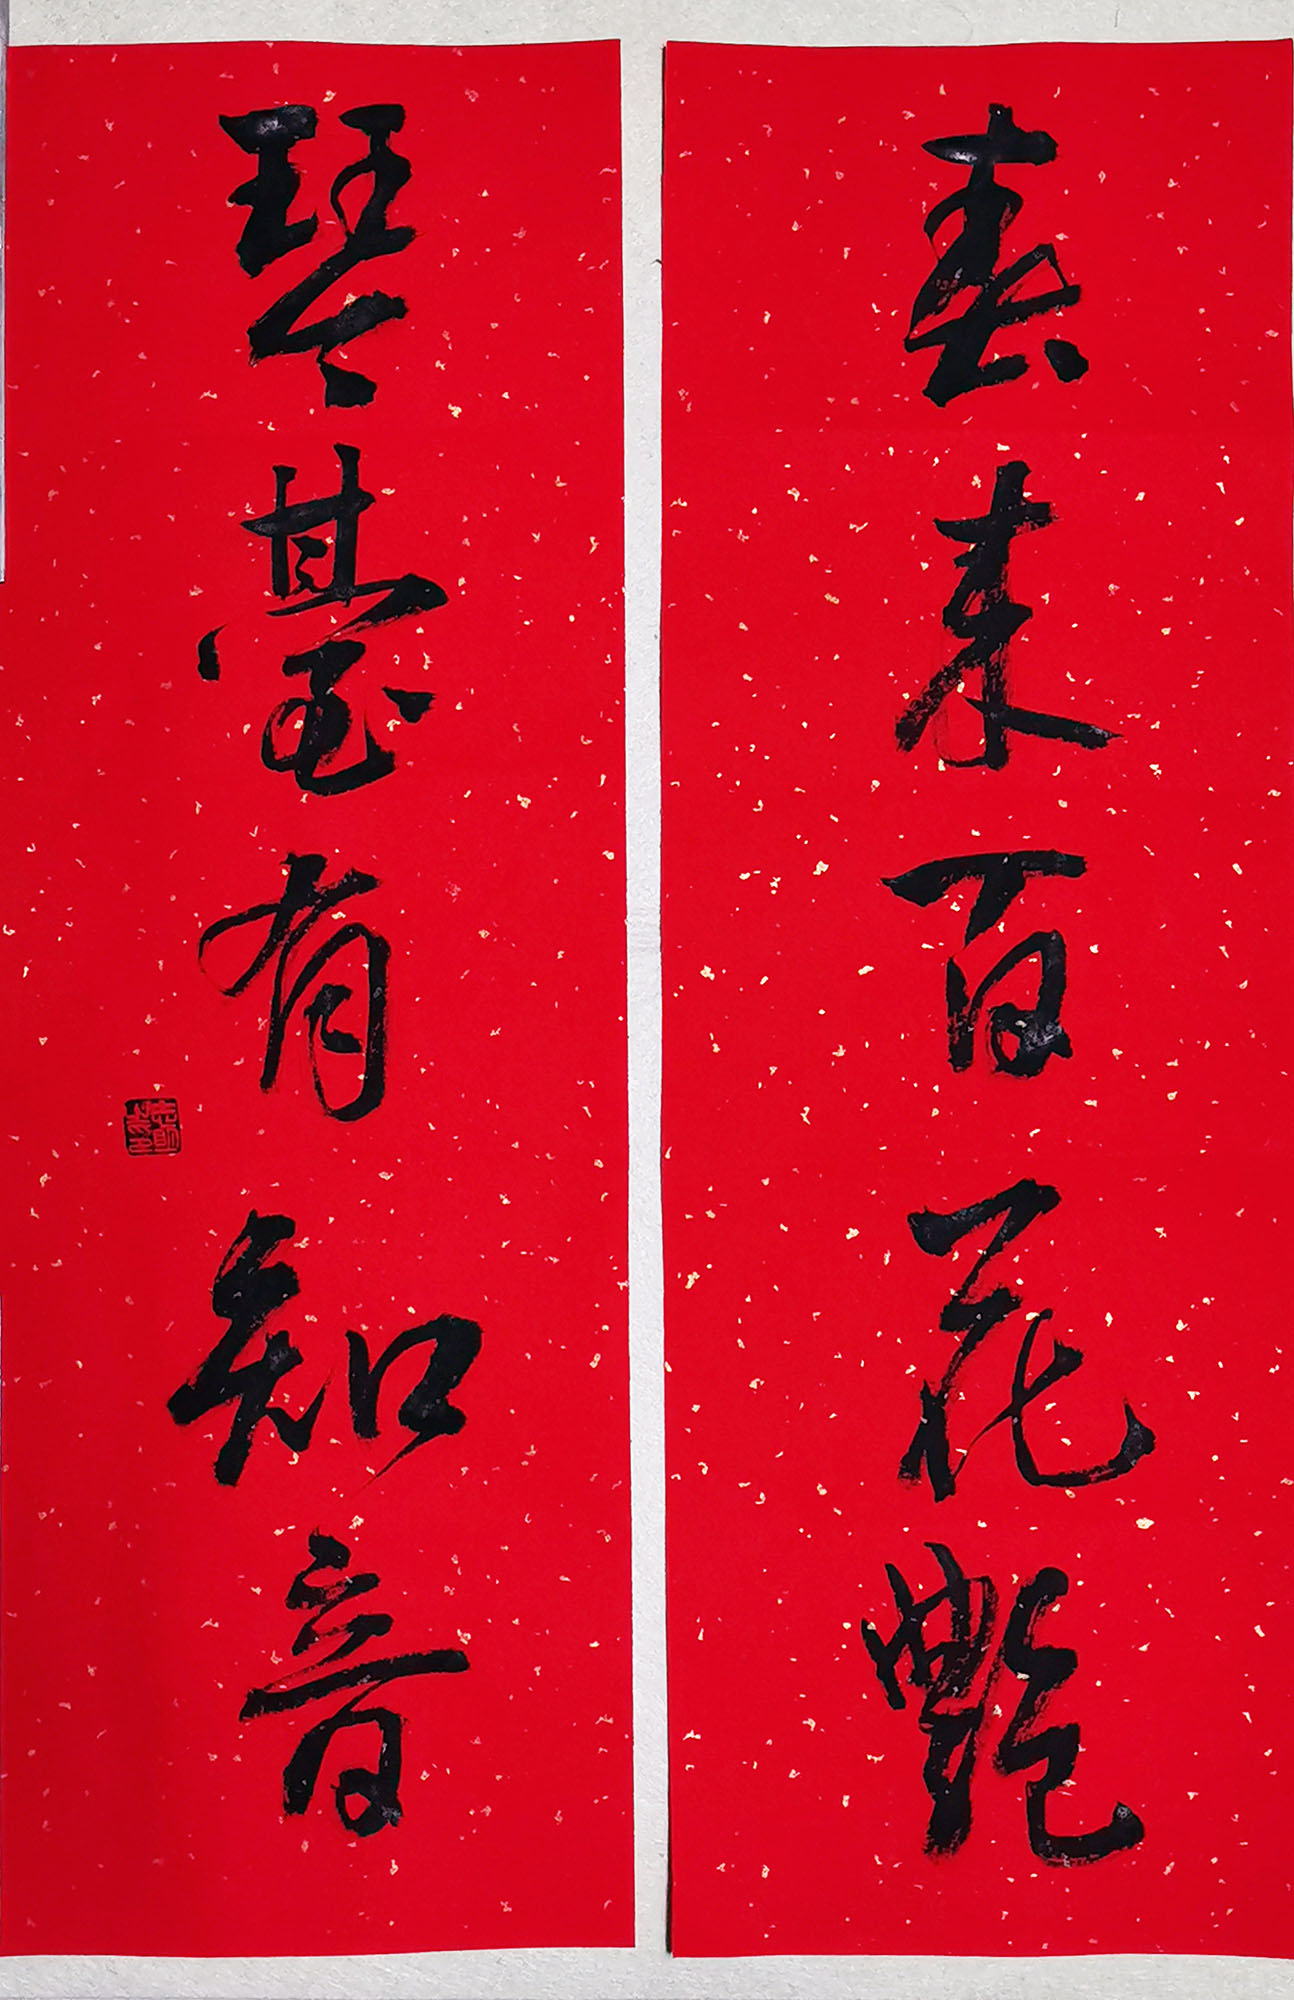 春来百花艷
琴臺有知音